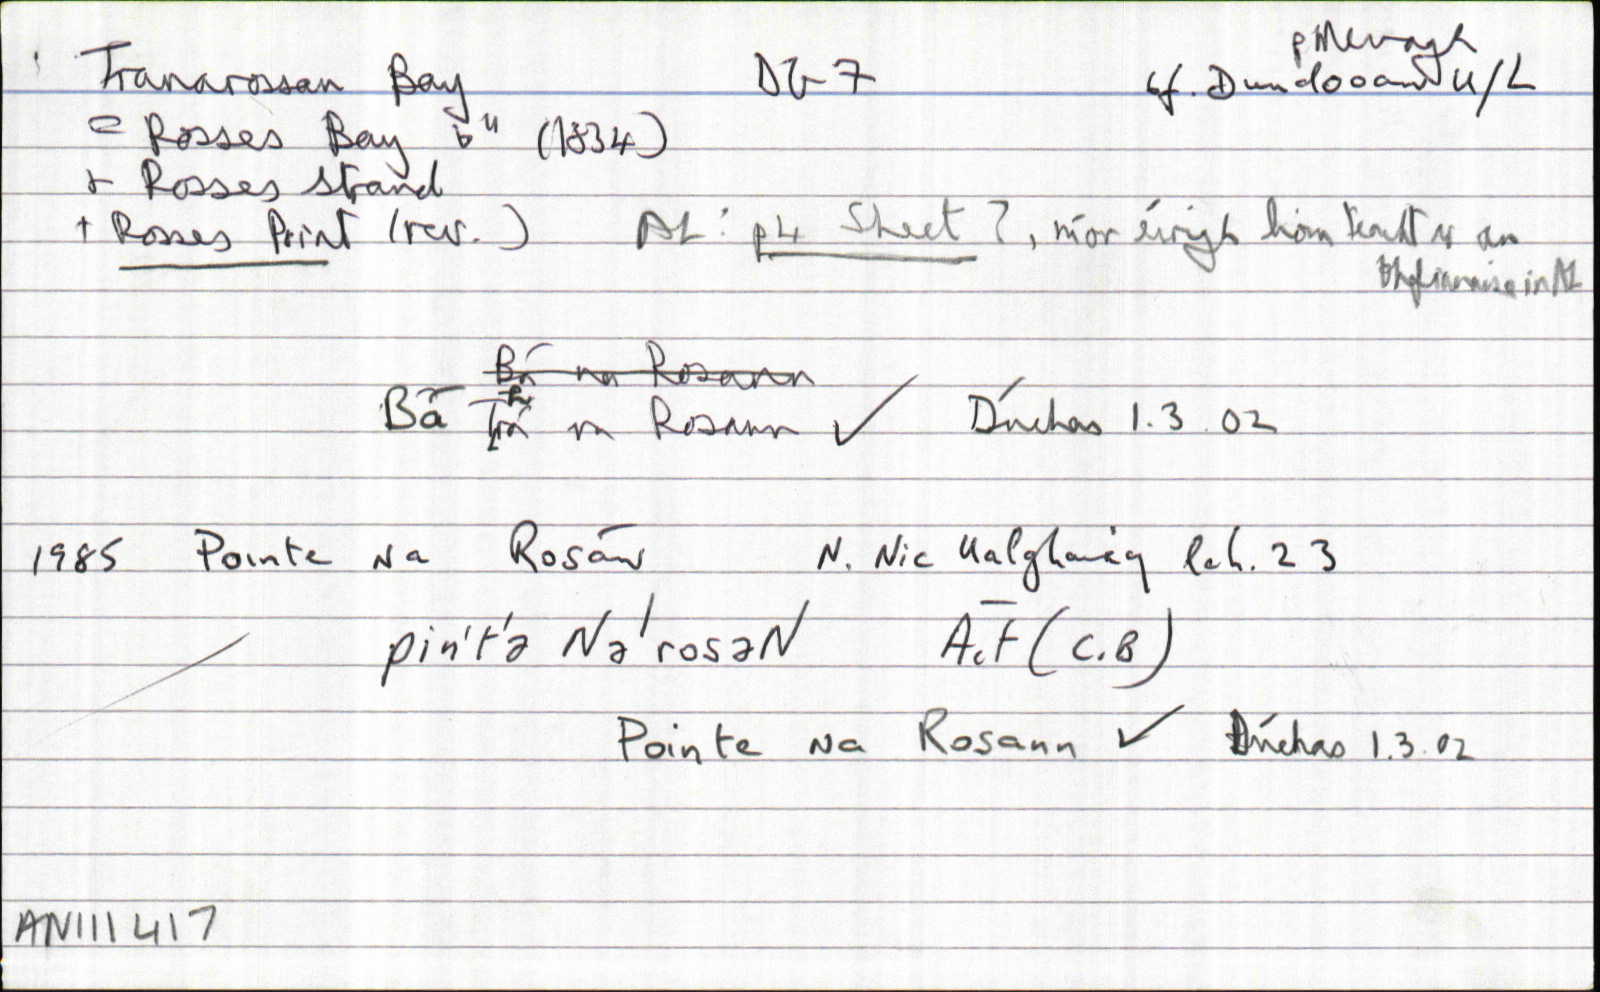 p Mevagh
Tranarossan Bay DG-7 cf. Dundooan U/L
= Rosses Bay 6" (1834)
+ Rosses strand
+ Rosses Point (rev.) AL: p4 Sheet 7, níor éirigh liom teacht ar an
bhfianaise in AL
Bá na Rosann
Bá Trá na Rosann ✓ Dúchas 1.3.02
1985 Pointe na Rosann N. Nic Ualgharaig lch. 23
pin't'ə Nə'rosəN A.F (C.B)
Pointe na Rosann ✓ Dúchas 1.3.02
AN111417